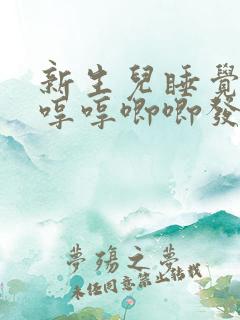 新生兒睡覺
哼哼唧唧發
夢殤之夢
未經同意禁止轉載